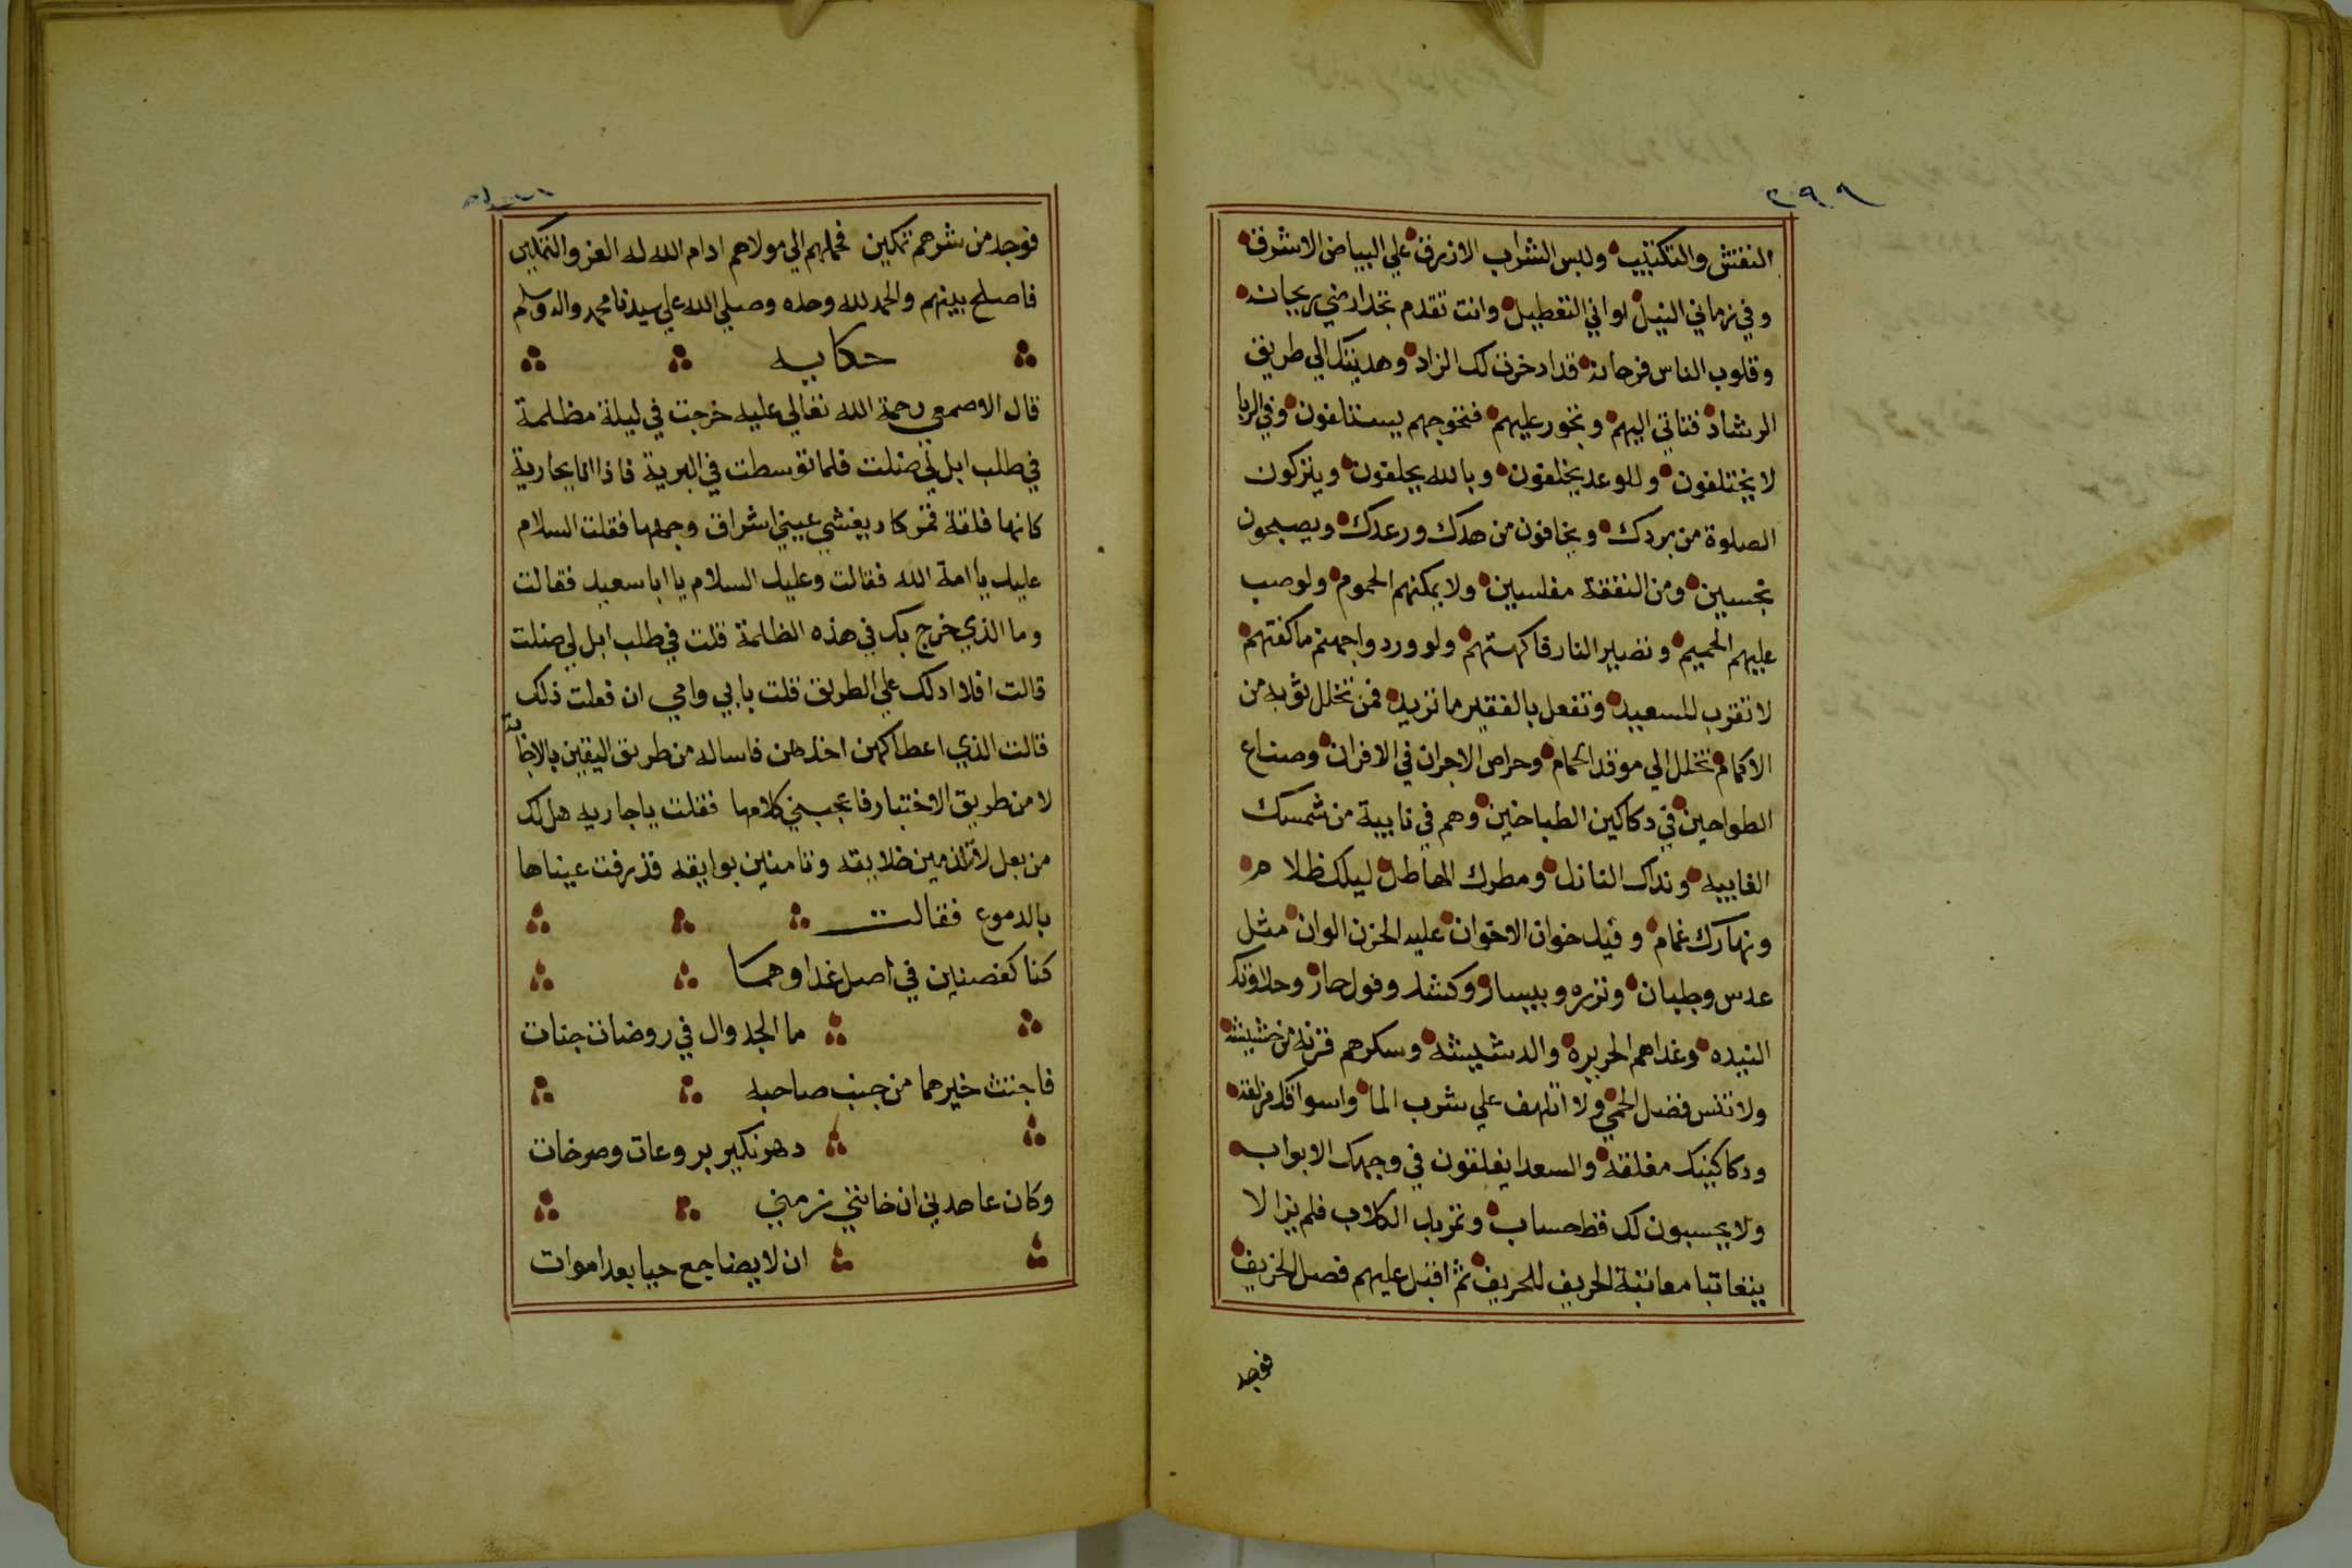 ٢٩٩
النفتش والتكتيب ولبس الشراب الازرق علي البياض الاشرف
وفي زماني النيل لواني التعطيل وانت تقدم تجدارضي ريحانه
وقلوب الناس فرحانه قد ادخرت لك الزاد وهديتك الي طريق
الرشاد فتاتي اليهم وتجور عليهم فتحوجهم يستلفون وفي الربا
لا يختلفون وللوعد يخلفون وبالله يحلفون ويتركون
الصلوة من بردك ويخافون من هدك ورعدك ويصبحون
نجسين ومن النفقة مفلسين ولا يمكنهم الحموم ولو صب
عليهم الحميم وتصير النار فاكهتهم ولو وردوا جهنم ماكفتهم
لا تقرب للسعيد وتفعل بالفقير ما تريد فمن تخلل ثوبه من
الاكمام تخلل الي موقد الحمام وحراص الاجران في الافران وصناع
الطواحين في دكاكين الطباخين وهم في نايبة من شمسك
الغايبه ونداك النازل ومطرك الهاطل ليلك ظلام
ونهارك غمام وقيل خوان الاخوان عليه الحزن الوان مثل
عدس وجلبان وتزره وبيسار وكشك وفول حار وحلاوتك
النيده وغداهم الحريره والدشيشه وسكرهم قزنه من حشيشه
ولا تنس فضل الحمي ولا اتلهف علي شرب الما واسواقك مزلقه
ودكاكينك مغلقه والسعدا يغلقون في وجهك الابواب
ولا يحسبون لك قط حساب وتمزبك الكلاب فلم يزالا
يتعاتبا معاتبة الحريف للحريف ثم اقبل عليهم فصل الخريف
فوجد
فوجد من شرهم تمكين فحملهم الي مولاهم ادام الله له العز والتمكين
فاصلح بينهم والحمد لله وحده وصلي الله علي سيدنا محمد واله وسلم
حكايه
قال الاصمعي رحمة الله تعالي عليه خرجت في ليلة مظلمة
في طلب ابل لي ضلت فلما توسطت في البرية فاذا انا بجارية
كانها فلقة قمر كاد يغشي عيني اشراق وجهها فقلت السلام
عليك يا امة الله فقالت وعليك السلام يا ابا سعيد فقالت
وما الذي خرج بك في هذه الظلمة قلت في طلب ابل لي ضلت
قالت افلا ادلك علي الطريق قلت بابي وامي ان فعلت ذلك
قالت الذي اعطاكهن اخذهن فاساله من طريق اليقين بالاجابة
لا من طريق الاختبار فاعجبني كلامها فقلت يا جاريه هل لك
من بعل لا تذمين خلايقه وتامنين بوايقه فذرفت عيناها
بالدموع فقالت
كنا كغصنين في اصل غداوهما
ما الجدوال في روضات جنات
فاجتث خيرهما من جنب صاحبه
دهر نكير بروعات وصرخات
وكان عاهدني ان خانني زمني
ان لا يضاجع حيا بعد اموات